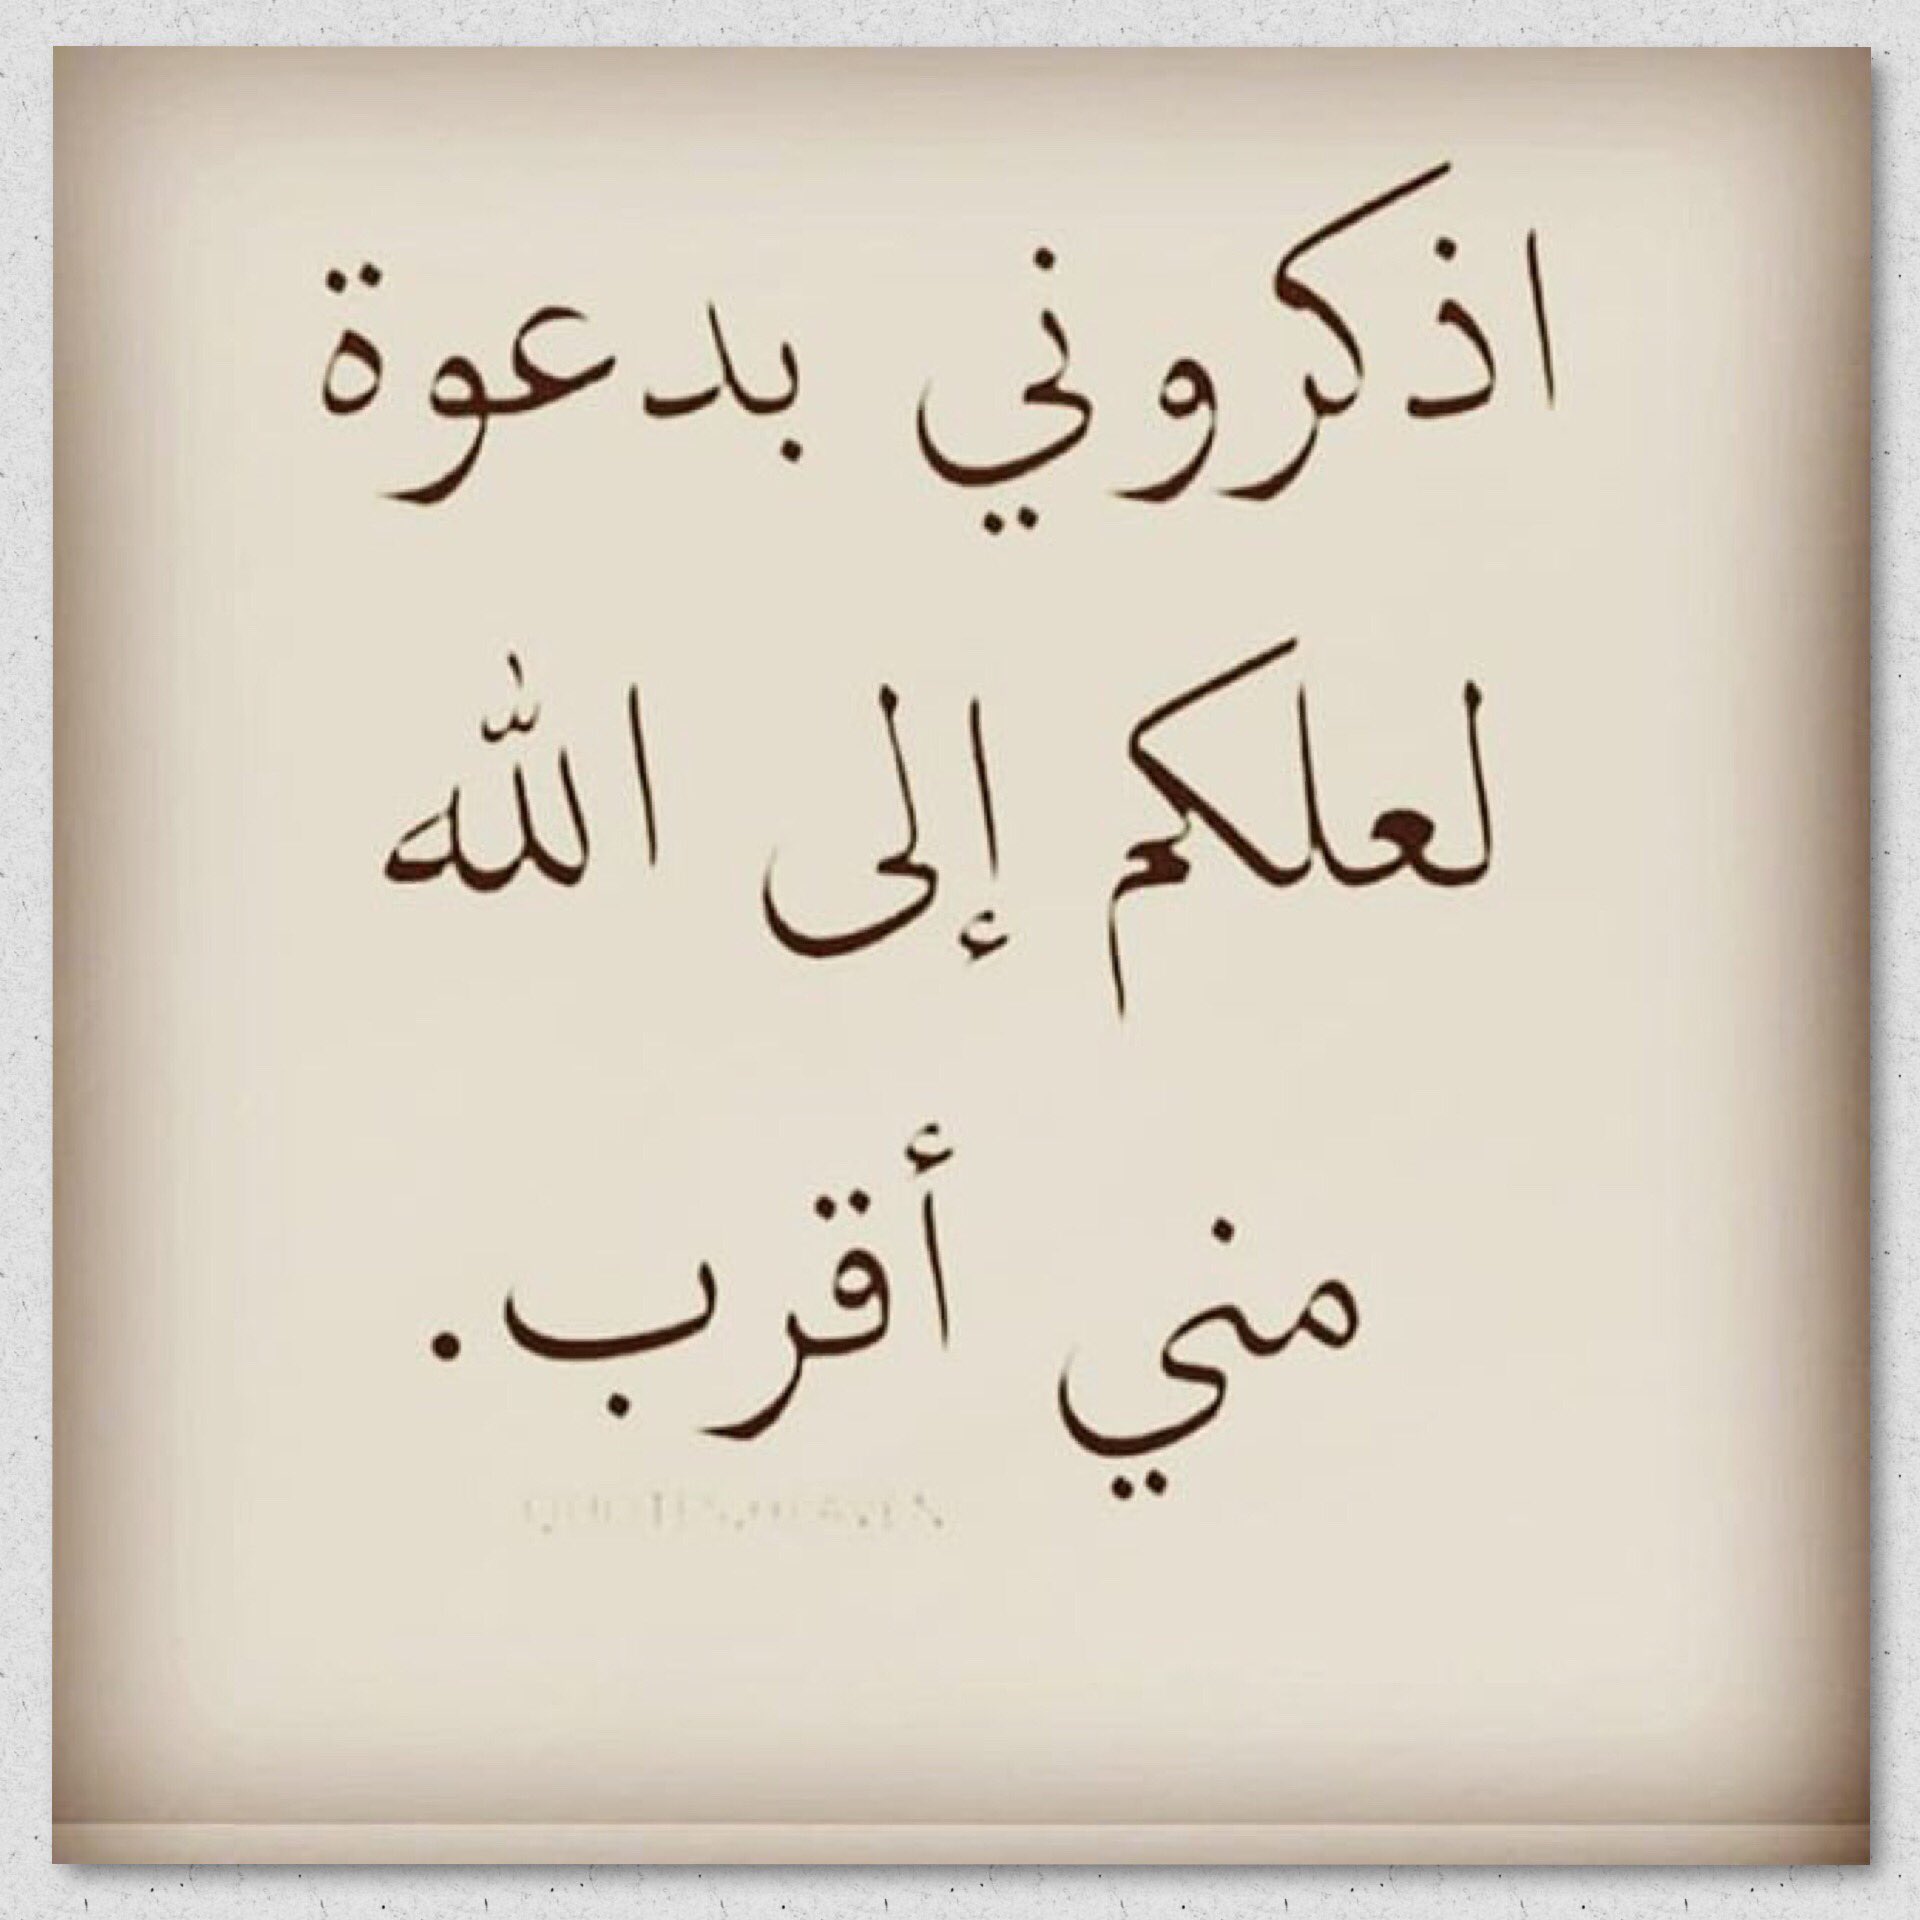 اذكروني بدعوة
لعلكم إلى الله
مني أقرب.